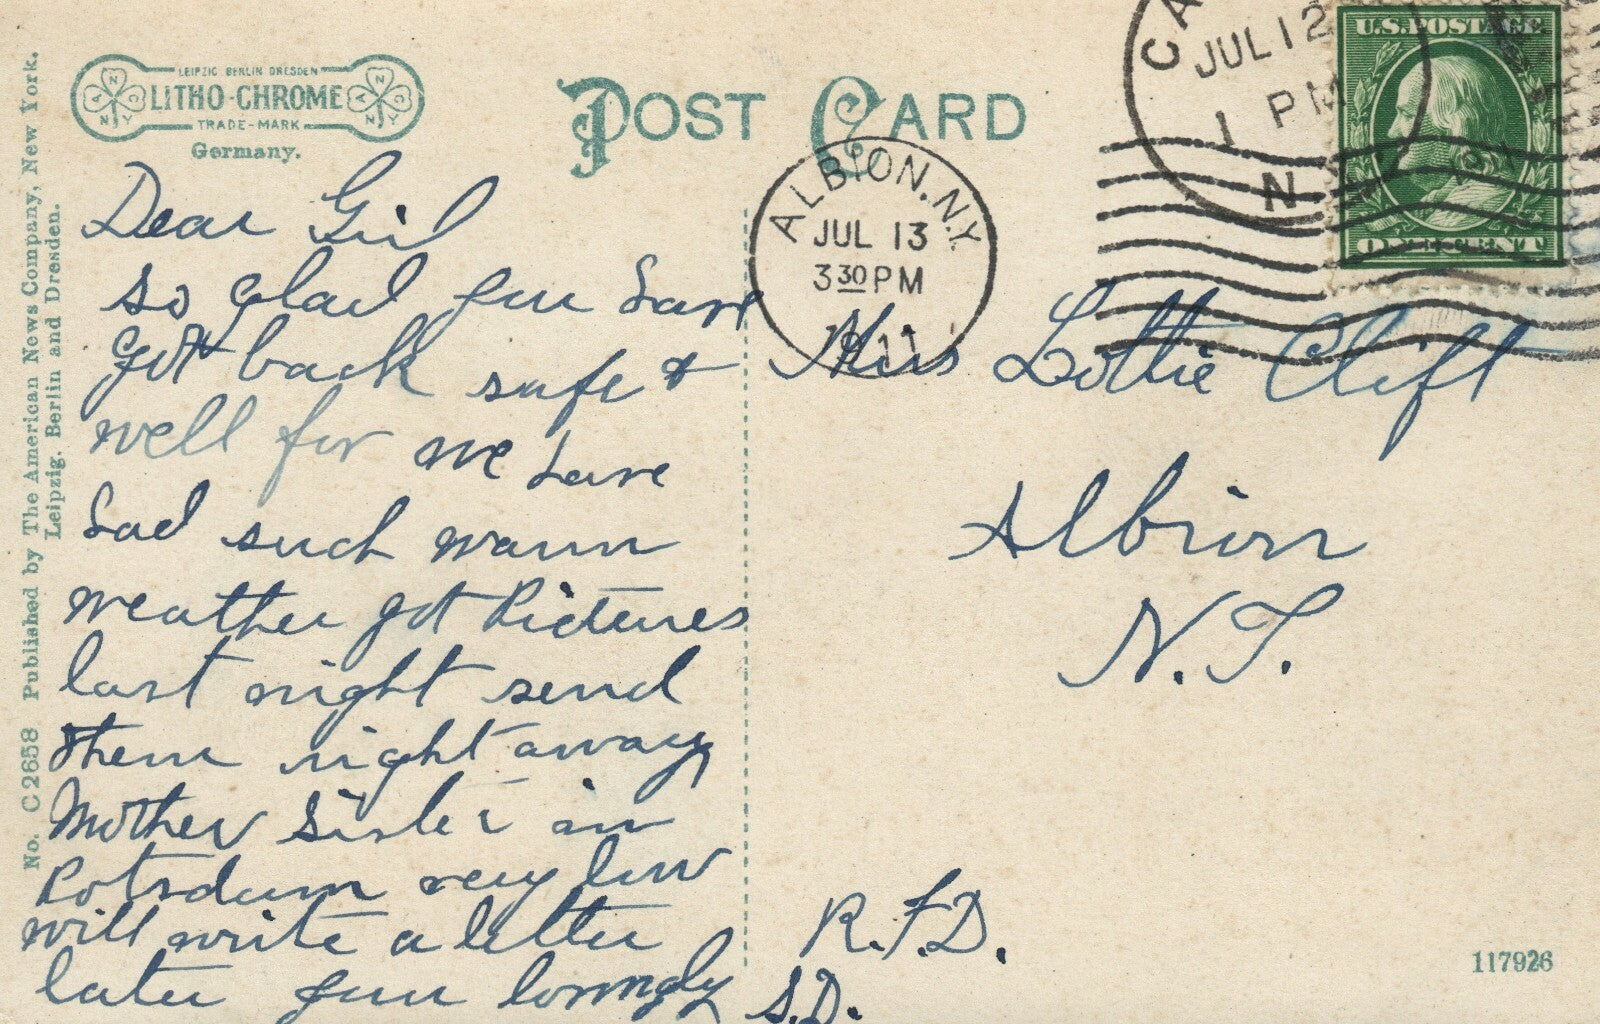 LEIPZIG BERLIN DRESDEN
LITHO-CHROME
TRADE-MARK
Germany.
POST CARD
No. C2658 Published by The American News Company, New York.
Leipzig. Berlin and Dresden.
CA
JUL 12
1 PM
N.
U.S. POSTAGE
ONE CENT
ALBION, N.Y.
JUL 13
3 30 PM
1911
Dear Girl
So glad you have
got back safe &
well for we have
had such warm
weather got Pictures
last night send
them right away,
Mother Sister in
Potsdam very low
will write a letter
later your lovingly
S.D.
Miss Lottie Clift
Albion
N.Y.
R.F.D.
117926